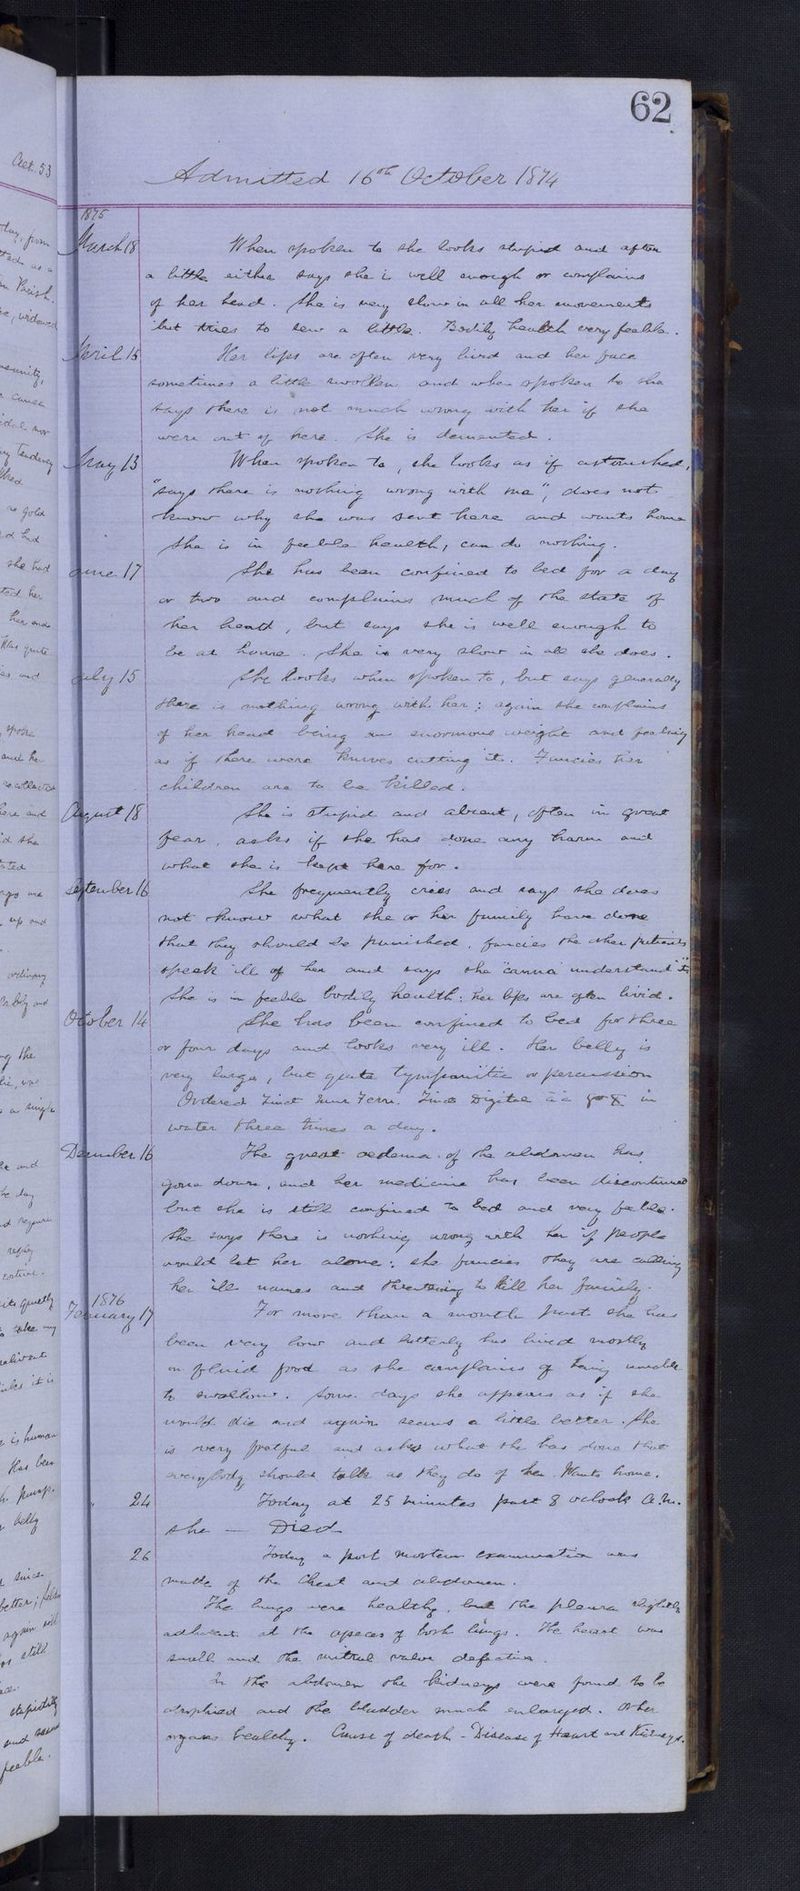 62
Admitted 16th October 1874
1875
March 18 When spoken to she looks stupid and after
a little either says she is well enough or complains
of her head. She is very slow in all her movements
but tries to sew a little. Bodily health very feeble.
April 15 Her lips are often very livid and her face
sometimes a little swollen and when spoken to she
says there is not much wrong with her if she
were out of here. She is demented.
May 13 When spoken to, she looks as if astonished,
"says there is nothing wrong with me", does not
know why she was sent here and wants home
She is in feeble health, can do nothing.
June 17 She has been confined to bed for a day
or two and complains much of the state of
her head, but says she is well enough to
be at home. She is very slow in all she does.
July 15 She looks when spoken to, but says generally
there is nothing wrong with her; again she complains
of her head being an enormous weight and feeling
as if there were knives cutting it. Fancies her
children are to be killed.
August 18 She is stupid and absent, often in great
fear, asks if she has done any harm and
what she is kept here for.
September 16 She frequently cries and says she does
not know what she or her family have done
that they should be punished, fancies the other patients
speak ill of her and says she "canna understand it"
She is in feeble bodily health; her lips are often livid.
October 14 She has been confined to bed for three
or four days and looks very ill. Her belly is
very large, but quite tympanitic on percussion
Ordered Tinct Mur Ferri. Tinct Digital āā in
water three times a day.
December 16 The great oedema of the abdomen has
gone down, and her medicine has been discontinued
but she is still confined to bed and very feeble.
She says there is nothing wrong with her if people
would let her alone; she fancies they are calling
her ill names and threatening to kill her family.
1876
February 17 For more than a month past she has
been very low and latterly has lived mostly
on fluid food as she complains of being unable
to swallow. Some days she appears as if she
would die and again seems a little better. She
is very fretful and asks what she has done that
everybody should talk as they do of her. Wants home.
" 24 Today at 25 minutes past 8 oclock a.m.
she — Died
26 Today a post mortem examination was
made of the Chest and abdomen.
The lungs were healthy, but the pleura slightly
adherent at the apeces of both lungs. The heart was
small and the mitral valve defective.
In the abdomen the kidneys were found to be
atrophied and the bladder much enlarged. Other
organs healthy. Cause of death - Disease of Heart and Kidneys.